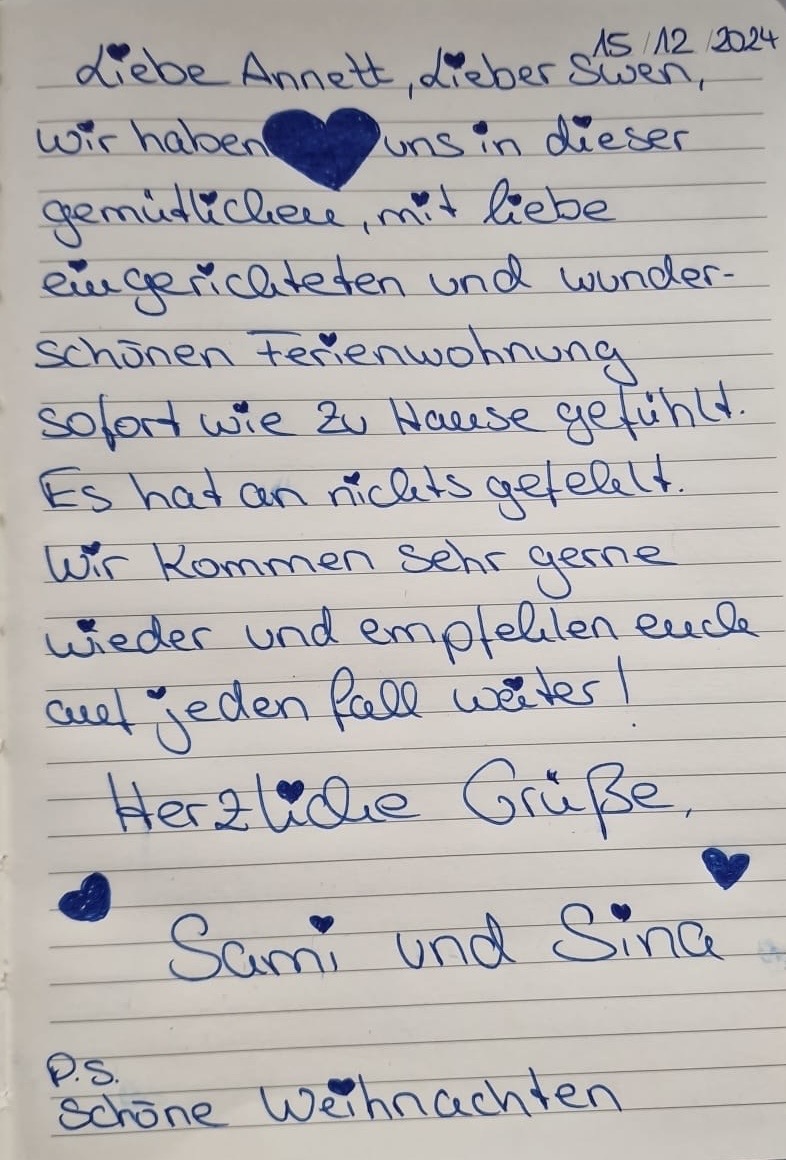 15/12/2024
Liebe Annett, Lieber Swen,
wir haben uns in dieser
gemütlichen, mit liebe
eingerichteten und wunder-
schönen Ferienwohnung
sofort wie zu Hause gefühlt.
Es hat an nichts gefehlt.
Wir kommen sehr gerne
wieder und empfehlen euch
auf jeden fall weiter!
Herzliche Grüße,
Sami und Sina
P.S.
Schöne Weihnachten